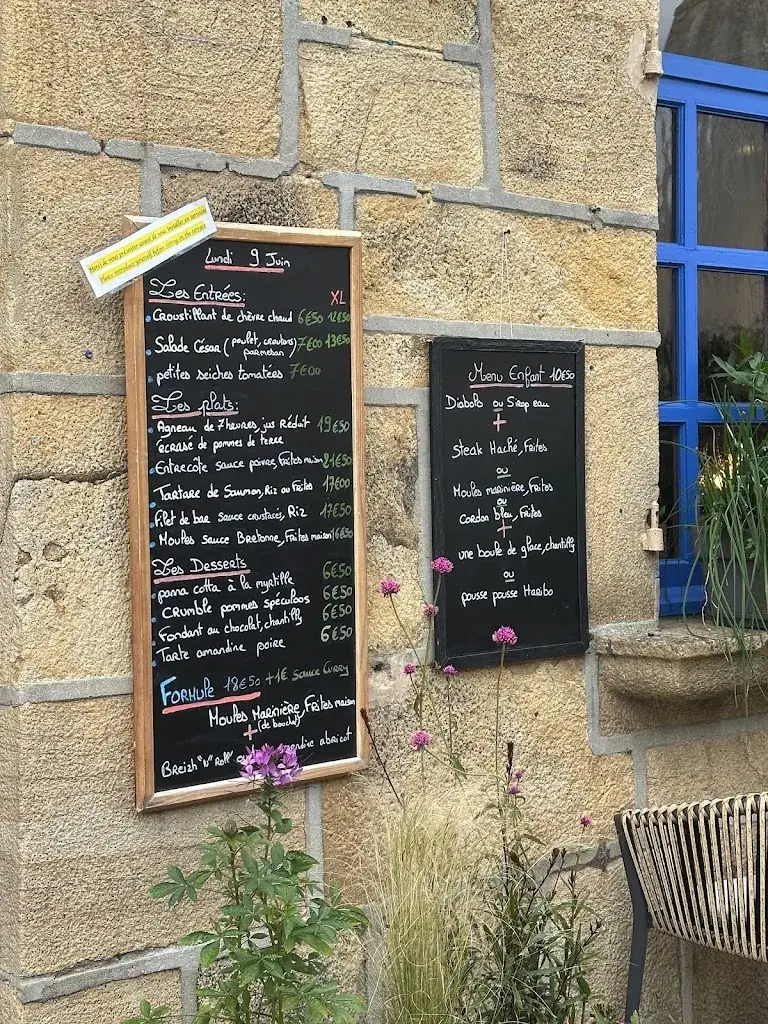 Merci de vous présenter avant de vous installer en terrasse
Please introduce yourself before sitting on the terrace
Lundi 9 Juin
Les Entrées: XL
Croustillant de chèvre chaud 6€50 12€50
Salade César (poulet, croutons 7€00 13€50
parmesan)
petites seiches tomatées 7€00
Les plats:
Agneau de 7 heures, jus Réduit 19€50
écrasé de pommes de terre
Entrecôte sauce poivre, Frites maison 21€50
Tartare de Saumon, Riz ou Frites 17€00
Filet de bar sauce crustacés, Riz 17€50
Moules sauce Bretonne, Frites maison 16€50
Les Desserts
panna cotta à la myrtille 6€50
Crumble pommes spéculoos 6€50
Fondant au chocolat, chantilly 6€50
Tarte amandine poire 6€50
Formule 18€50 +1€ sauce Curry
Moules Marinière, Frites maison
(de bouchot)
+
Breizh "N" Roll abricot
Menu Enfant 10€50
Diabolo ou Sirop eau
+
Steak Haché, Frites
ou
Moules marinière, Frites
ou
Cordon bleu, Frites
+
une boule de glace, chantilly
ou
pousse pousse Haribo